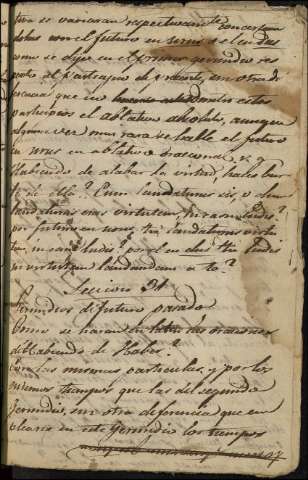 tiva se variaran respectivamte concertan
dolas con el futuro en rus o en dus
como se dijo en el primer gerundio res
pecto al participio de presente, sin otra di
ferencia que en estos
participios el ablativo absoluto, aunque
alguna vez muy rara se halle el futuro
en rus en ablativo oracional v. g.
Habiendo de alabar la virtud, hales bur
la de ella? Cum laudaturus sis, o eum
laudaturus eras virtutem,
por futuro en rus, tu laudaturus virtu
tem por el en dus tu ludis
virtutem laudandam a te?
Leccion 31
Gerundios de futuro pasado
Como se haran las oraciones
del Habiendo de Haber?
Con las mismas particulas, y por los
mismos tiempos que las del segundo
Gerundio, sin otra diferencia que em
plearse en este Gerundio los tiempos